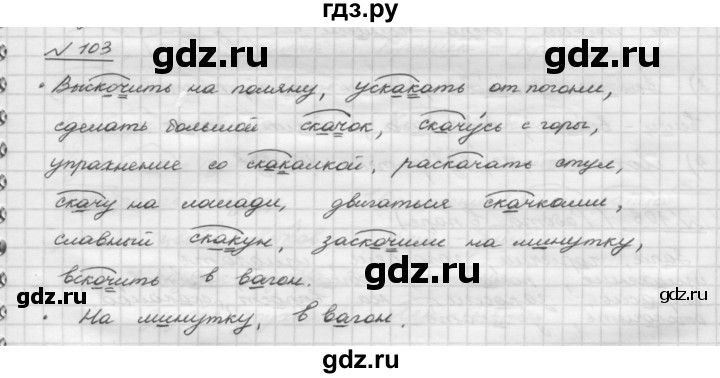 гдз.ру
№ 103
gdz.ru gdz.ru
• Выскочить на поляну, ускакать от погони,
сделать большой скачок, скачусь с горы,
упражнение со скакалкой, раскачать стул,
скачу на лошади, двигаться скачками,
славный скакун, заскочили на минутку,
вскочить в вагон.
gdz.ru gdz.ru gdz.ru
• На минутку, в вагон.
gdz.ru